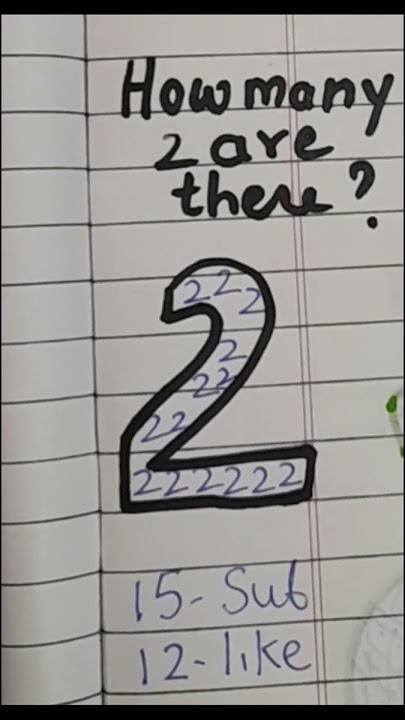 How many
2 are
there?
2
222
2
22
22
222222
15- Sub
12- like